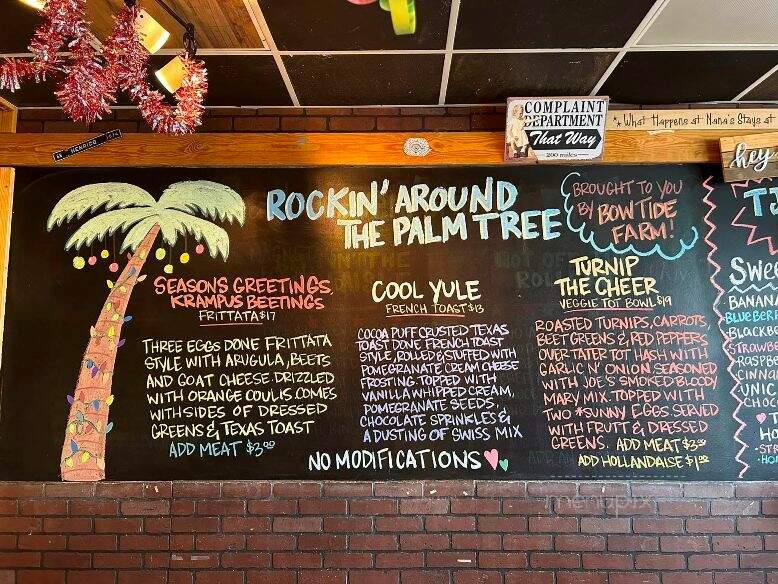 COMPLAINT
DEPARTMENT
That Way
200 miles
What Happens at Nana's Stays at
hey
HENRICO
ROCKIN' AROUND
THE PALM TREE
BROUGHT TO YOU
BY BOWTIDE
FARM!
SEASONS GREETINGS,
KRAMPUS BEETINGS
FRITTATA $17
THREE EGGS DONE FRITTATA
STYLE WITH ARUGULA, BEETS
AND GOAT CHEESE DRIZZLED
WITH ORANGE COULIS COMES
WITH SIDES OF DRESSED
GREENS & TEXAS TOAST
ADD MEAT $3.00
COOL YULE
FRENCH TOAST $13
COCOA PUFF CRUSTED TEXAS
TOAST DONE FRENCH TOAST
STYLE, ROLLED & STUFFED WITH
POMEGRANATE CREAM CHEESE
FROSTING. TOPPED WITH
VANILLA WHIPPED CREAM,
POMEGRANATE SEEDS,
CHOCOLATE SPRINKLES &
A DUSTING OF SWISS MIX
TURNIP
THE CHEER
VEGGIE TOT BOWL $19
ROASTED TURNIPS, CARROTS,
BEET GREENS & RED PEPPERS
OVER TATER TOT HASH WITH
GARLIC N' ONION SEASONED
WITH JOE'S SMOKED BLOODY
MARY MIX. TOPPED WITH
TWO *SUNNY EGGS. SERVED
WITH FRUIT & DRESSED
GREENS. ADD MEAT $3.00
ADD HOLLANDAISE $1.00
NO MODIFICATIONS
menupix